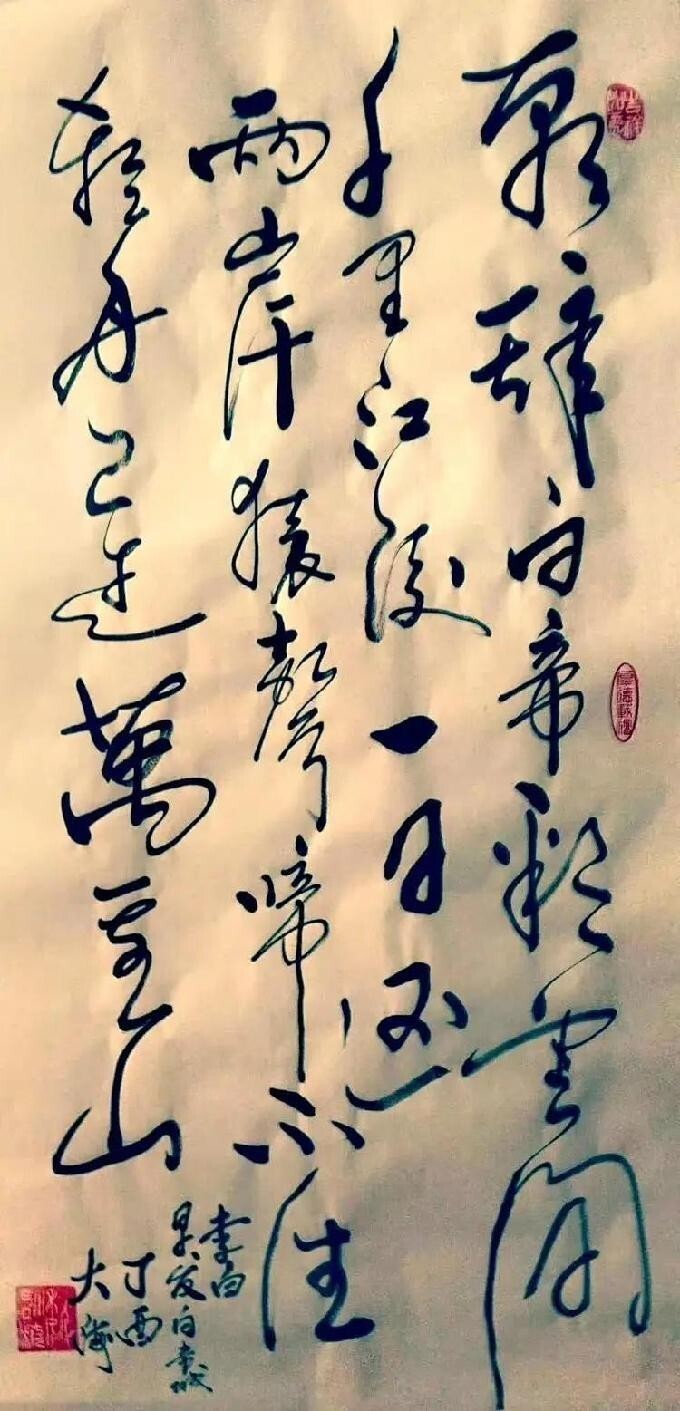 朝辞白帝彩雲間
千里江陵一日還
兩岸猿聲啼不住
輕舟已過萬重山
李白
早发白帝城
丁酉
大海